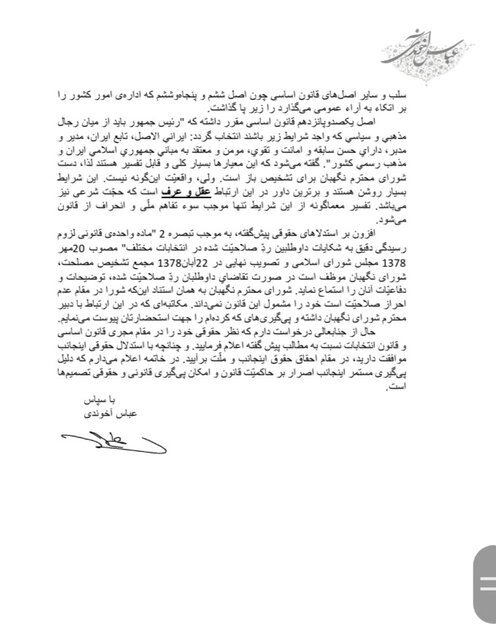 عباس آخوندی
سلب و سایر اصل‌های قانون اساسی چون اصل ششم و پنجاه‌وششم که اداره‌ی امور کشور را
بر اتکاء به آراء عمومی می‌گذارد را زیر پا گذاشت.
اصل یکصدوپانزدهم قانون اساسی مقرر داشته که "رئیس جمهور باید از میان رجال
مذهبي و سیاسي که واجد شرایط زیر باشند انتخاب گردد: ایراني الاصل، تابع ایران، مدیر و
مدبر، داراي حسن سابقه و امانت و تقوي، مومن و معتقد به مباني جمهوري اسلامي ایران و
مذهب رسمي کشور". گفته می‌شود که این معیارها بسیار کلی و قابل تفسیر هستند لذا، دست
شورای محترم نگهبان برای تشخیص باز است. ولی، واقعیّت این‌گونه نیست. این شرایط
بسیار روشن هستند و برترین داور در این ارتباط عقل و عرف است که حجّت شرعی نیز
می‌باشد. تفسیر معماگونه از این شرایط تنها موجب سوء تفاهم ملّی و انحراف از قانون
می‌شود.
افزون بر استدلاهای حقوقی پیش‌گفته، به موجب تبصره 2 "ماده واحده‌ی قانونی لزوم
رسیدگی دقیق به شکایات داوطلبین ردّ صلاحیّت شده در انتخابات مختلف" مصوب 20مهر
1378 مجلس شورای اسلامی و تصویب نهایی در 22آبان1378 مجمع تشخیص مصلحت،
شورای نگهبان موظف است در صورت تقاضای داوطلبان ردّ صلاحیّت شده، توضیحات و
دفاعیّات آنان را استماع نماید. شورای محترم نگهبان به همان استناد این‌که شورا در مقام عدم
احراز صلاحیّت است خود را مشمول این قانون نمی‌داند. مکاتبه‌ای که در این ارتباط با دبیر
محترم شورای نگهبان داشته و پی‌گیری‌های که کرده‌ام را جهت استحضارتان پیوست می‌نمایم.
حال از جنابعالی درخواست دارم که نظر حقوقی خود را در مقام مجری قانون اساسی
و قانون انتخابات نسبت به مطالب پیش گفته اعلام فرمایید. و چنانچه با استدلال حقوقی اینجانب
موافقت دارید، در مقام احقاق حقوق اینجانب و ملّت برآیید. در خاتمه اعلام می‌دارم که دلیل
پی‌گیری مستمر اینجانب اصرار بر حاکمیّت قانون و امکان پی‌گیری قانونی و حقوقی تصمیم‌ها
است.
با سپاس
عباس آخوندی